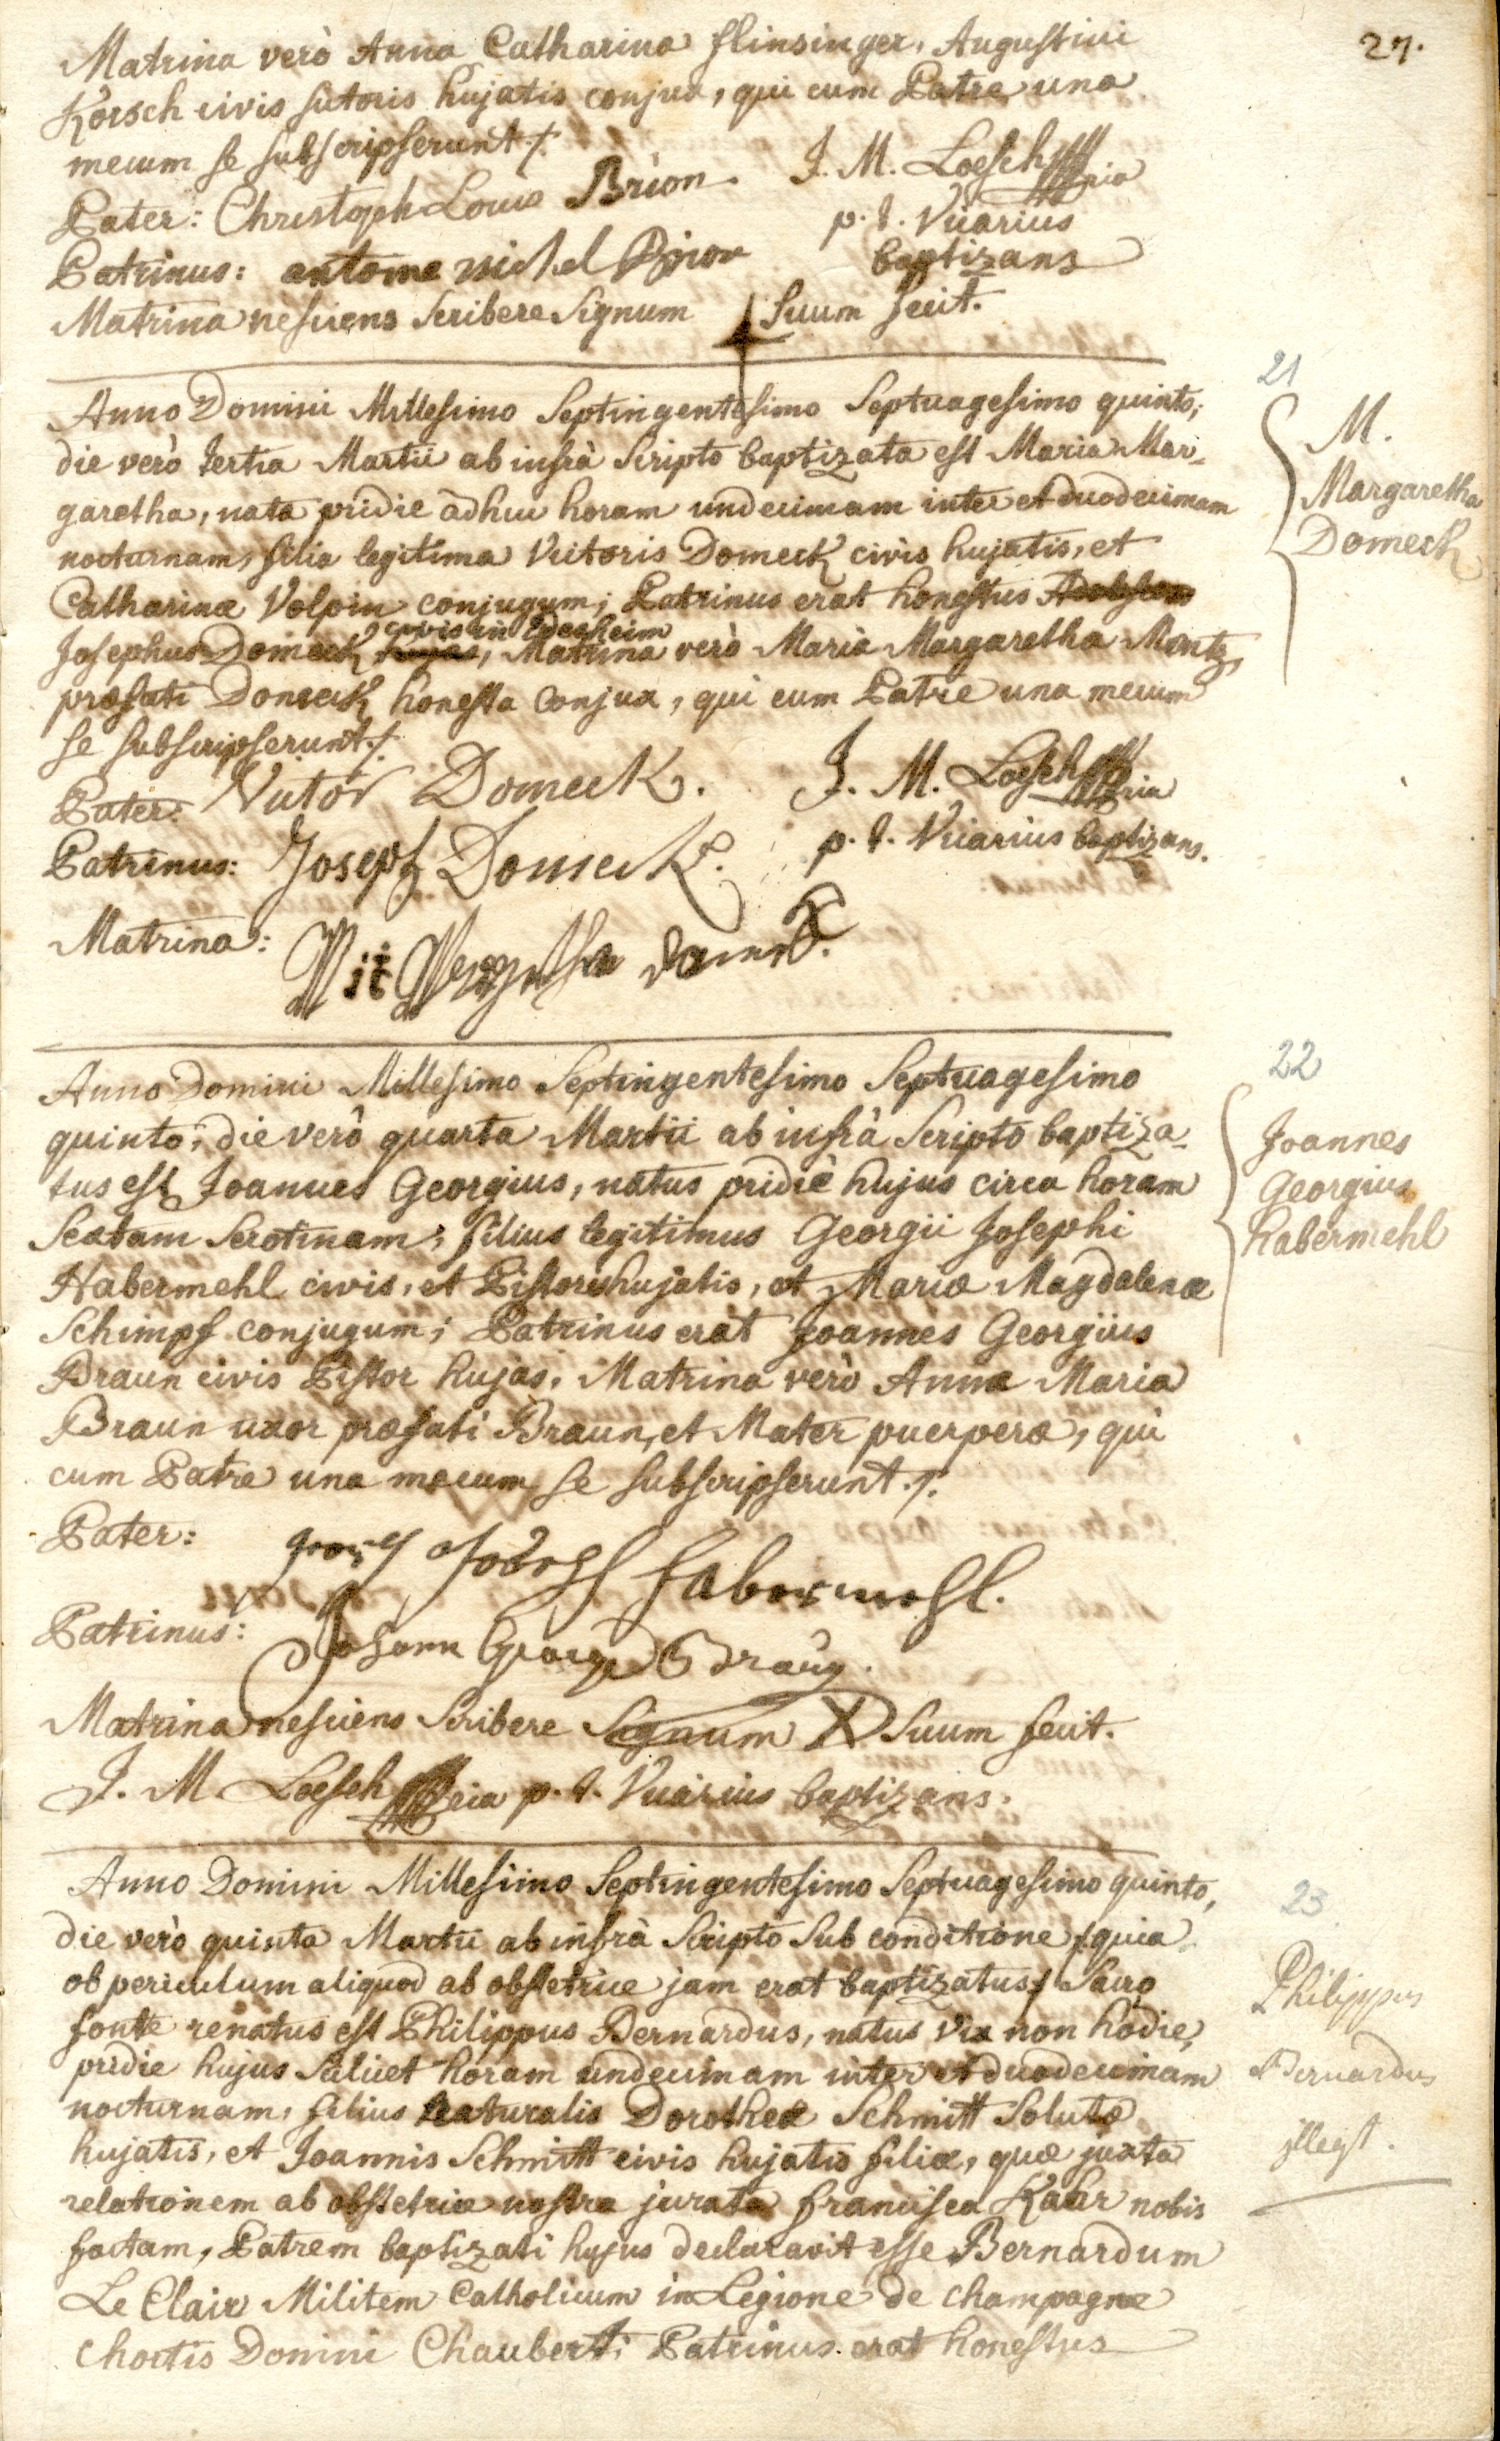 27.
Matrina verò Anna Catharina Flinsinger, Augustini
Korsch civis sutoris hujatis conjux, qui cum Patre una
mecum se subscripserunt ./.
J. M. Loesch mpria
Pater: Christoph Louis Brion.
p. t. Vicarius
baptizans
Patrinus: antome michel Brion
Matrina nesciens scribere signum + suum fecit.
21
Anno Domini Millesimo Septingentesimo Septuagesimo quinto;
die verò tertia Martii ab infrà scripto baptizata est Maria Mar-
garetha, nata pridie adhuc horam undecimam inter et duodecimam
nocturnam, filia legitima Victoris Domeck civis hujatis, et
Catharinæ Volpin conjugum; Patrinus erat honestus
civis in Edesheim
Josephus Domeck hujas, Matrina verò Maria Margaretha Montz,
præfati Domeck honesta conjux, qui cum Patre una mecum
se subscripserunt ./.
M.
Margaretha
Domeck
Pater: Victor Domeck.
J. M. Loesch mpria
p. t. Vicarius baptizans.
Patrinus: Joseph Domeck.
Matrina:
22
Anno Domini Millesimo Septingentesimo Septuagesimo
quinto, die verò quarta Martii ab infrà scripto baptiza-
tus est Joannes Georgius, natus pridiè hujus circa horam
sextam serotinam, filius legitimus Georgii Josephi
Habermehl civis, et Pistoris hujatis, et Mariæ Magdalenæ
Schimpf conjugum; Patrinus erat Joannes Georgius
Braun civis Pistor hujas. Matrina verò Anna Maria
Braun uxor præfati Braun, et Mater puerperæ, qui
cum Patre una mecum se subscripserunt ./.
Joannes
Georgius
Habermehl
Pater: georg Joseph Habermehl.
Patrinus: Johann Georg Braun.
Matrina nesciens scribere signum X suum fecit.
J. M Loesch mpria p. t. Vicarius baptizans.
23
Anno Domini Millesimo Septingentesimo Septuagesimo quinto,
die verò quinta Martii ab infrà scripto sub conditione (quia
ob periculum aliquod ab obstetrice jam erat baptizatus) sacro
fonte renatus est Philippus Bernardus, natus vix non hodie,
pridie hujus scilicet horam undecimam inter et duodecimam
nocturnam, filius naturalis Dorotheæ Schmitt solutæ
hujatis, et Joannis Schmitt civis hujatis filiæ, quæ juxta
relationem ab obstetrice nostra jurata Francisca Kähr nobis
factam, Patrem baptizati hujus declaravit esse Bernardum
Le Clair Militem Catholicum in Legione de Champagne
chortis Domini Chaubert; Patrinus erat honestus
Philippus
Bernardus
illegit.